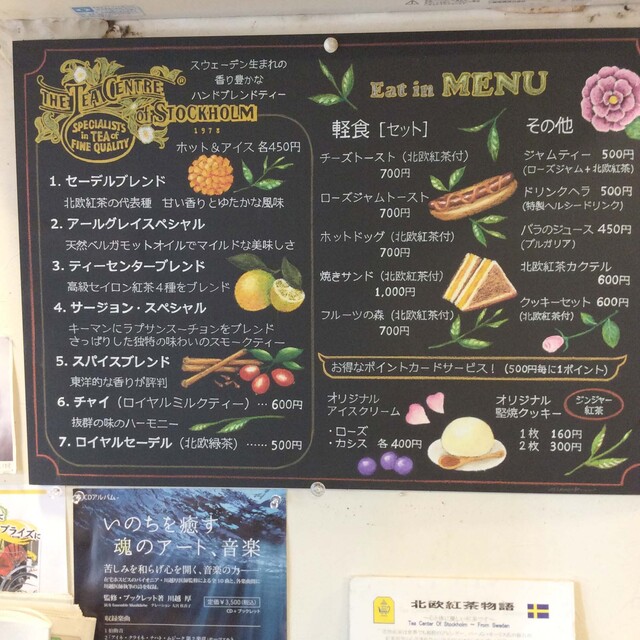 THE TEA CENTRE
of STOCKHOLM
SPECIALISTS
in TEA of
FINE QUALITY
1978
スウェーデン生まれの
香り豊かな
ハンドブレンドティー
ホット&アイス 各450円
1. セーデルブレンド
北欧紅茶の代表種 甘い香りとゆたかな風味
2. アールグレイスペシャル
天然ベルガモットオイルでマイルドな美味しさ
3. ティーセンターブレンド
高級セイロン紅茶4種をブレンド
4. サージョン・スペシャル
キーマンにラプサンスーチョンをブレンド
さっぱりした独特の味わいのスモークティー
5. スパイスブレンド
東洋的な香りが評判
6. チャイ(ロイヤルミルクティー)… 600円
抜群の味のハーモニー
7. ロイヤルセーデル(北欧緑茶)…… 500円
Eat in MENU
軽食 [セット]
チーズトースト(北欧紅茶付)
700円
ローズジャムトースト
700円
ホットドッグ(北欧紅茶付)
700円
焼きサンド(北欧紅茶付)
1,000円
フルーツの森(北欧紅茶付)
700円
その他
ジャムティー 500円
(ローズジャム+北欧紅茶)
ドリンクヘラ 500円
(特製ヘルシードリンク)
バラのジュース 450円
(ブルガリア)
北欧紅茶カクテル
600円
クッキーセット 600円
(北欧紅茶付)
お得なポイントカードサービス!(500円毎に1ポイント)
オリジナル
アイスクリーム
・ローズ
・カシス 各400円
オリジナル
堅焼クッキー
ジンジャー
紅茶
1枚 160円
2枚 300円
プライズに
CDアルバム
いのちを癒す
魂のアート、音楽
苦しみを和らげ心を開く、音楽の力
監修・ブックレット著 川越 厚
定価¥3,500(税込)
CD+ブックレット
収録楽曲
北欧紅茶物語
Tea Center Of Stockholm ~ From Sweden